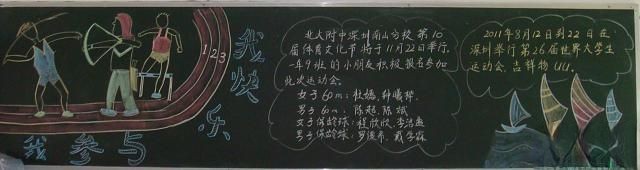 1 2 3
我参与
我快乐
北大附中深圳南山分校第10
届体育文化节将于11月22日举行.
一年9班的小朋友积极报名参加
此次运动会。
女子60m:
男子60m:
女子保龄球:
男子保龄球:
2011年8月12日到22日在
深圳举行第26届世界大学生
运动会,吉祥物UU。